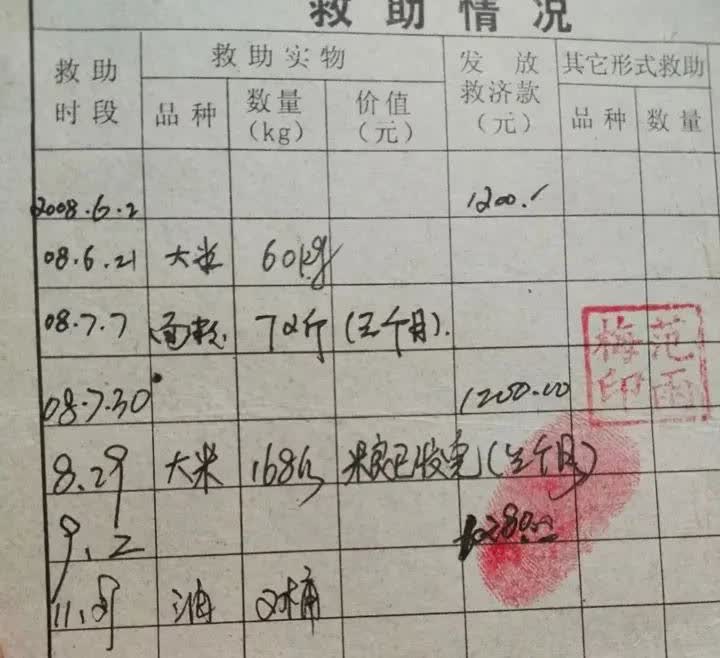 救助情况
救助时段 救助实物 发放救济款(元) 其它形式救助
品种 数量(kg) 价值(元) 品种 数量
2008.6.2 1200.
08.6.21 大米 60kg
08.7.7 面粉 72斤 (三个月).
08.7.30 1200.00
8.29 大米 168斤 (三个月)
9.2
11.8 油 2桶
范雨梅印